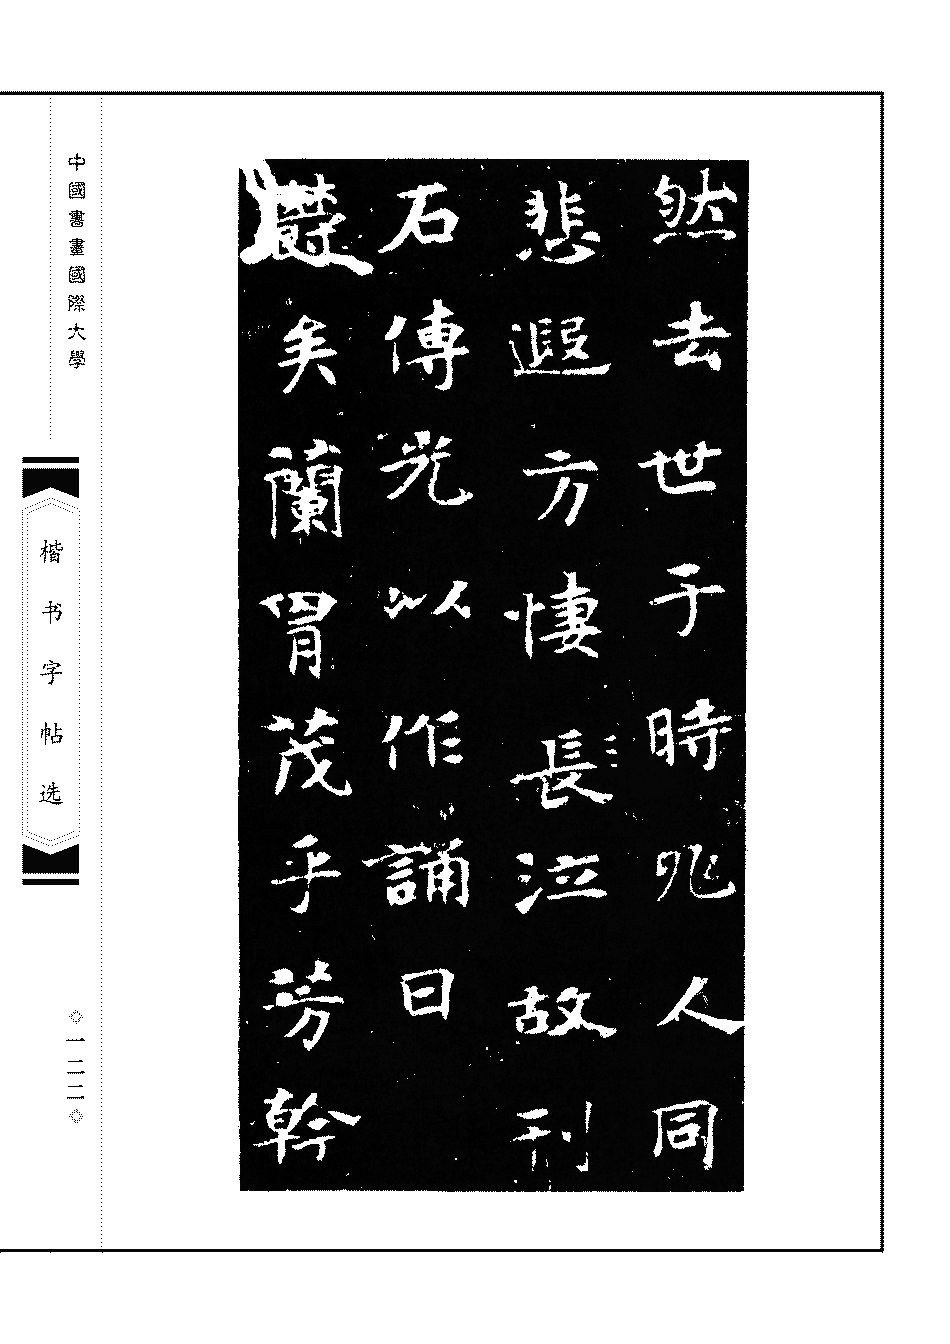 然去世于時兆人同
悲遐方悽長泣故刊
石傳光以作誦曰
欝矣蘭胄茂乎芳幹
中國書畫國際大學
楷书字帖选
◇一二二◇